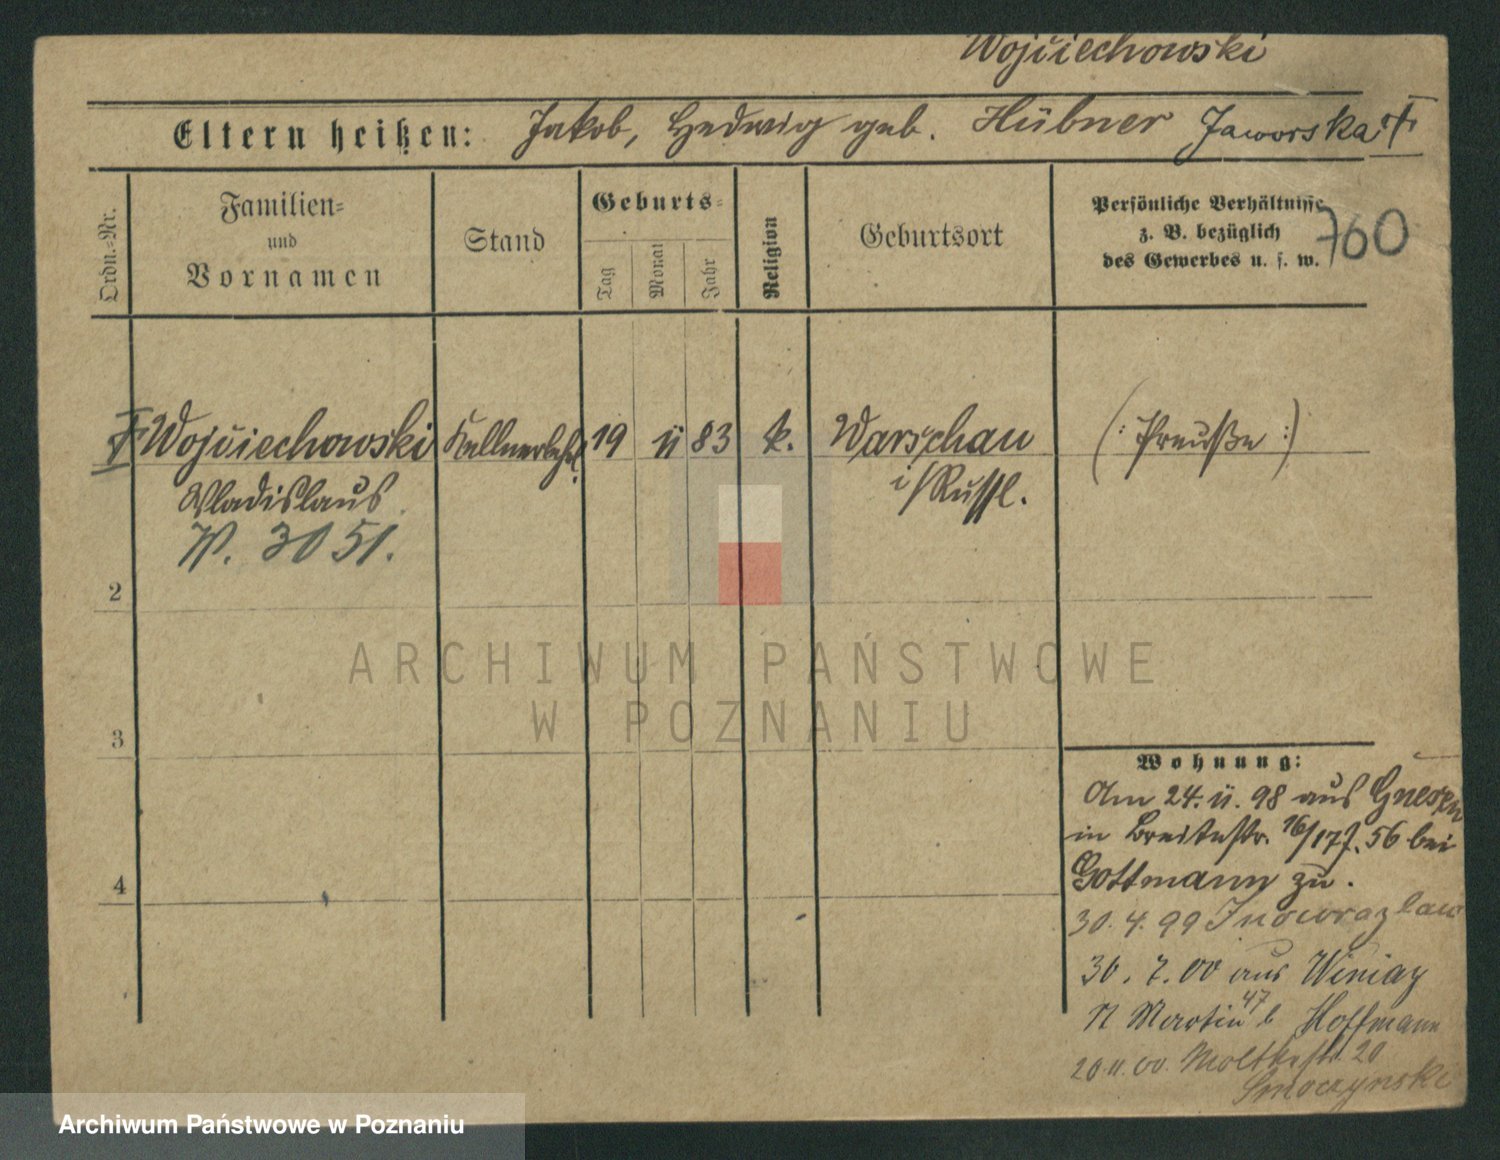 Wojciechowski
Eltern heißen: Jakob, Hedwig geb. Hübner Jaworska
Ordn.-Nr.
Familien-
und
Vornamen
Stand
Geburts-
Tag
Monat
Jahr
Religion
Geburtsort
Persönliche Verhältnisse
z. B. bezüglich
des Gewerbes u. s. w.
760
Wojciechowski Kellnerlehrl. 19 11 83 k. Warschau (: Preuße :)
Wladislaus i/Russl.
W. 3051.
2
3
4
Wohnung:
Am 24. 11. 98 aus Gnesen
in Breitestr. 16/17 J. 56 bei
Gottmann zu.
30. 4. 99 Inowrazlaw
30. 7. 00 aus Winiary
St Martin 47 b Hoffmann
20 11. 00. Moltkestr. 20
Smoczynski
ARCHIWUM PAŃSTWOWE
W POZNANIU
Archiwum Państwowe w Poznaniu